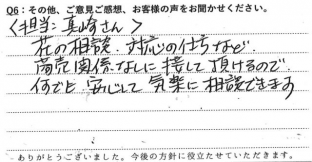 Q6：その他、ご意見ご感想、お客様の声をお聞かせください。
〈担当：真崎さん〉
花の相談、対応の仕方など、
商売関係なしに接して頂けるので
何でも安心して気楽に相談できます
ありがとうございました。今後の方針に役立たせていただきます。